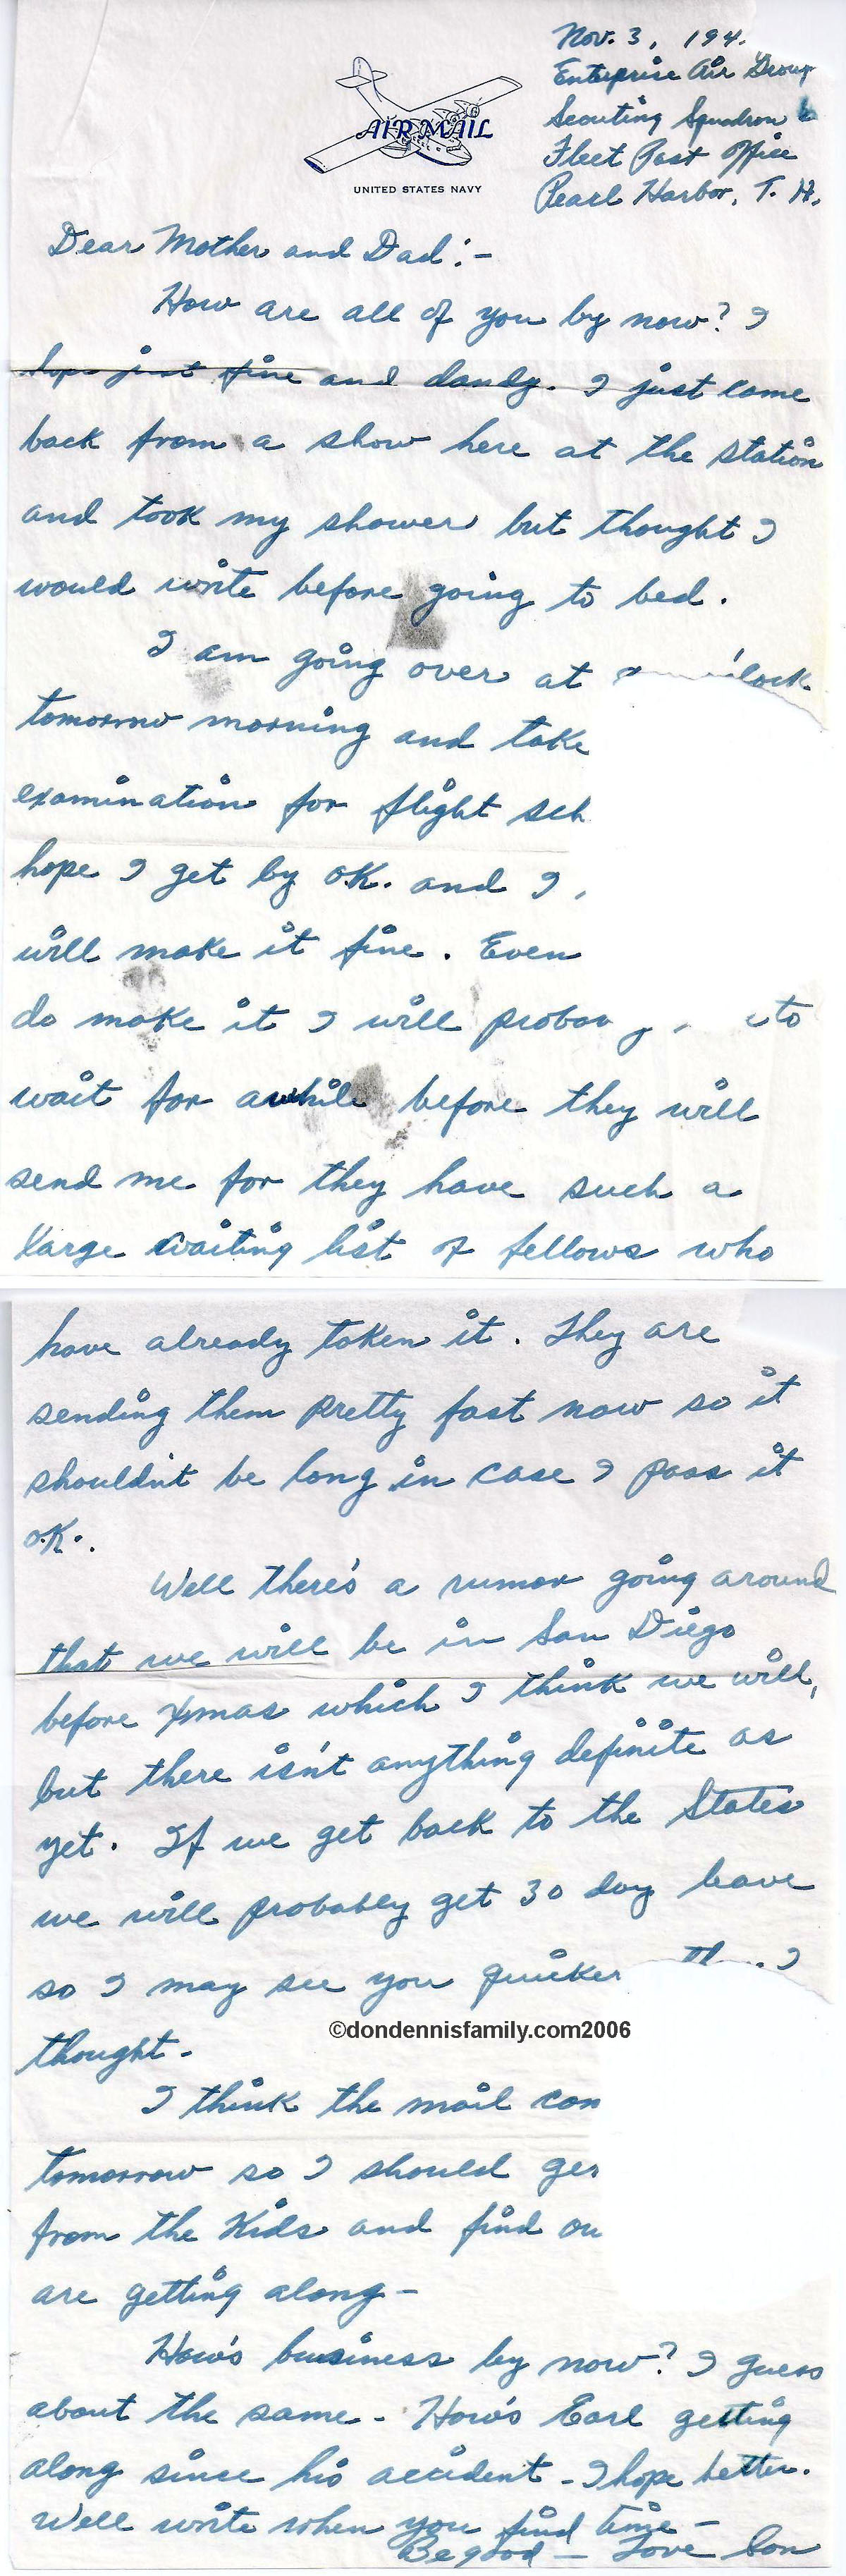 Nov. 3, 194
Enterprise Air Group
Scouting Squadron 6
Fleet Post Office
Pearl Harbor, T. H.
AIR MAIL
UNITED STATES NAVY
Dear Mother and Dad:-
How are all of you by now? I
hope just fine and dandy. I just came
back from a show here at the station
and took my shower but thought I
would write before going to bed.
I am going over at
tomorrow morning and take
examination for flight sch
hope I get by OK. and I
will make it fine. Even
do make it I will to
wait for awhile before they will
send me for they have such a
large waiting list of fellows who
have already taken it. They are
sending them pretty fast now so it
shouldn't be long in case I pass it
O.K..
Well there's a rumor going around
that we will be in San Diego
before Xmas which I think we will,
but there isn't anything definite as
yet. If we get back to the States
we will probably get 30 day leave
so I may see you quicker I
thought.
©dondennisfamily.com2006
I think the mail
tomorrow so I should
from the Kids and find
are getting along-
How's business by now? I guess
about the same - How's Earl getting
along since his accident - I hope better.
Well write when you find time -
Be good - Love Son